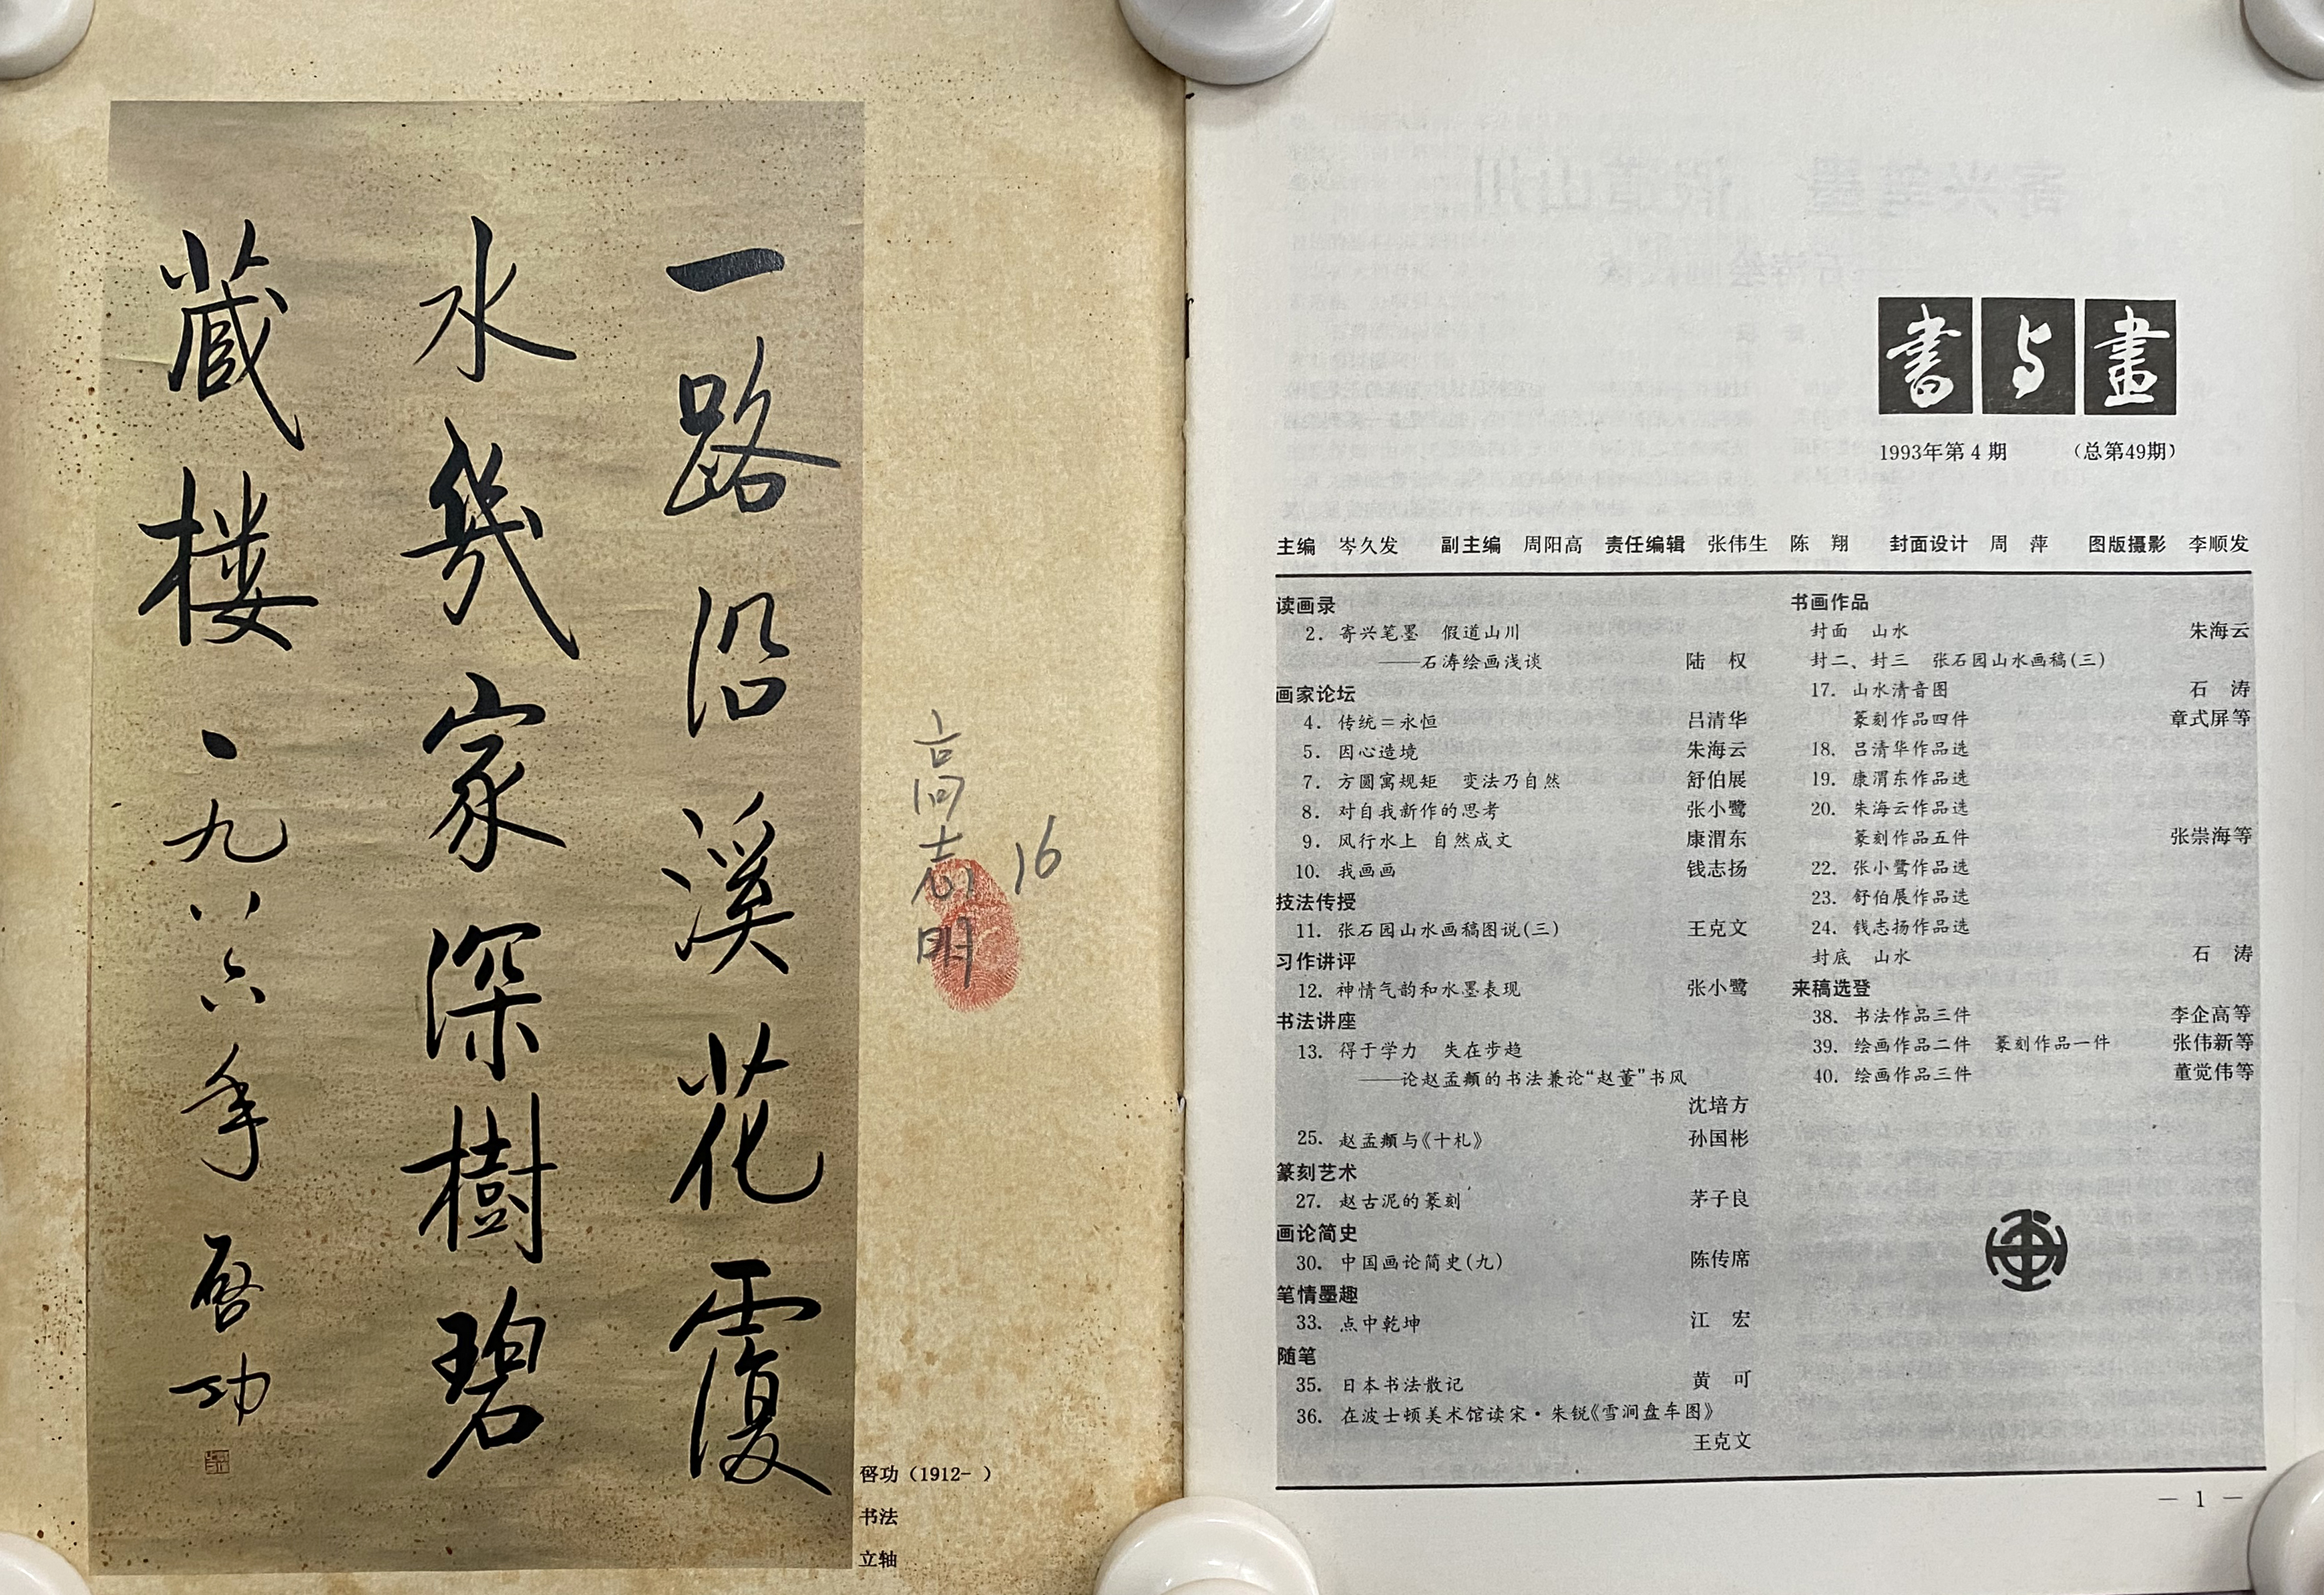 一路沿溪花覆
水幾家深樹碧
藏樓、一九八六年 啓功
高志明
16
啓功（1912- ）
书法
立轴
書与畫
1993年第4期 （总第49期）
主编 岑久发 副主编 周阳高 责任编辑 张伟生 陈 翔 封面设计 周 萍 图版摄影 李顺发
读画录
2. 寄兴笔墨 假道山川
——石涛绘画浅谈 陆 权
画家论坛
4. 传统=永恒 吕清华
5. 因心造境 朱海云
7. 方圆寓规矩 变法乃自然 舒伯展
8. 对自我新作的思考 张小鹭
9. 风行水上 自然成文 康渭东
10. 我画画 钱志扬
技法传授
11. 张石园山水画稿图说(三) 王克文
习作讲评
12. 神情气韵和水墨表现 张小鹭
书法讲座
13. 得于学力 失在步趋
——论赵孟頫的书法兼论“赵董”书风
沈培方
25. 赵孟頫与《十札》 孙国彬
篆刻艺术
27. 赵古泥的篆刻 茅子良
画论简史
30. 中国画论简史(九) 陈传席
笔情墨趣
33. 点中乾坤 江 宏
随笔
35. 日本书法散记 黄 可
36. 在波士顿美术馆读宋·朱锐《雪涧盘车图》
王克文
书画作品
封面 山水 朱海云
封二、封三 张石园山水画稿(三)
17. 山水清音图 石 涛
篆刻作品四件 章式屏等
18. 吕清华作品选
19. 康渭东作品选
20. 朱海云作品选
篆刻作品五件 张崇海等
22. 张小鹭作品选
23. 舒伯展作品选
24. 钱志扬作品选
封底 山水 石 涛
来稿选登
38. 书法作品三件 李企高等
39. 绘画作品二件 篆刻作品一件 张伟新等
40. 绘画作品三件 董觉伟等
— 1 —